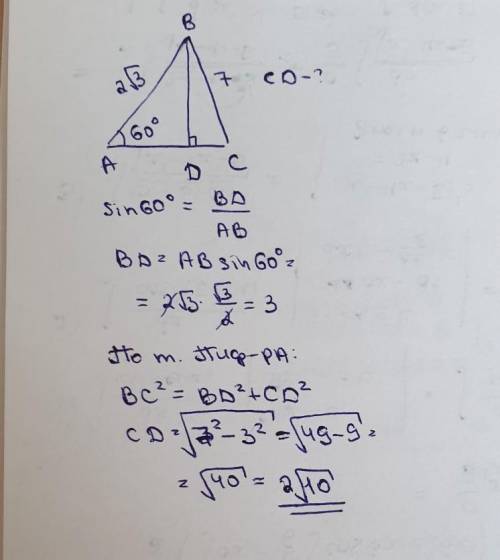 B
2√3
7
CD-?
60°
A
D
C
sin60° = BD/AB
BD = AB sin60° =
= 2√3 · √3/2 = 3
По т. Пиф-РА:
BC² = BD² + CD²
CD = √(7² - 3²) = √(49 - 9) =
= √40 = 2√10